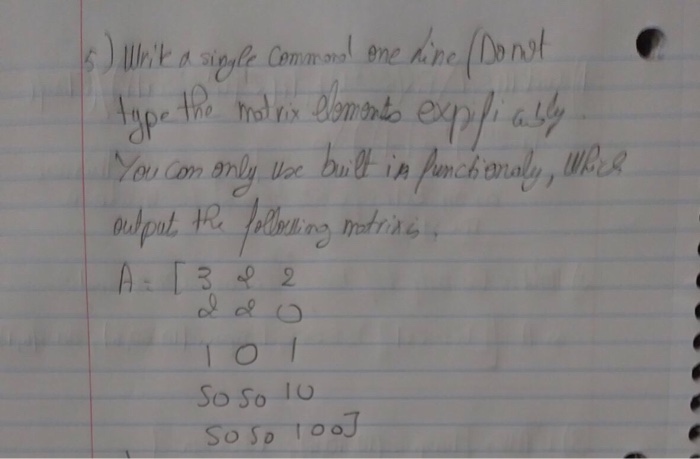 5) Write a single command one line (Do not
type the matrix elements expliably.
You can only use built in functionaly, which
output the following matrixs.
A = [ 3 2 2
2 2 0
1 0 1
50 50 10
50 50 100]